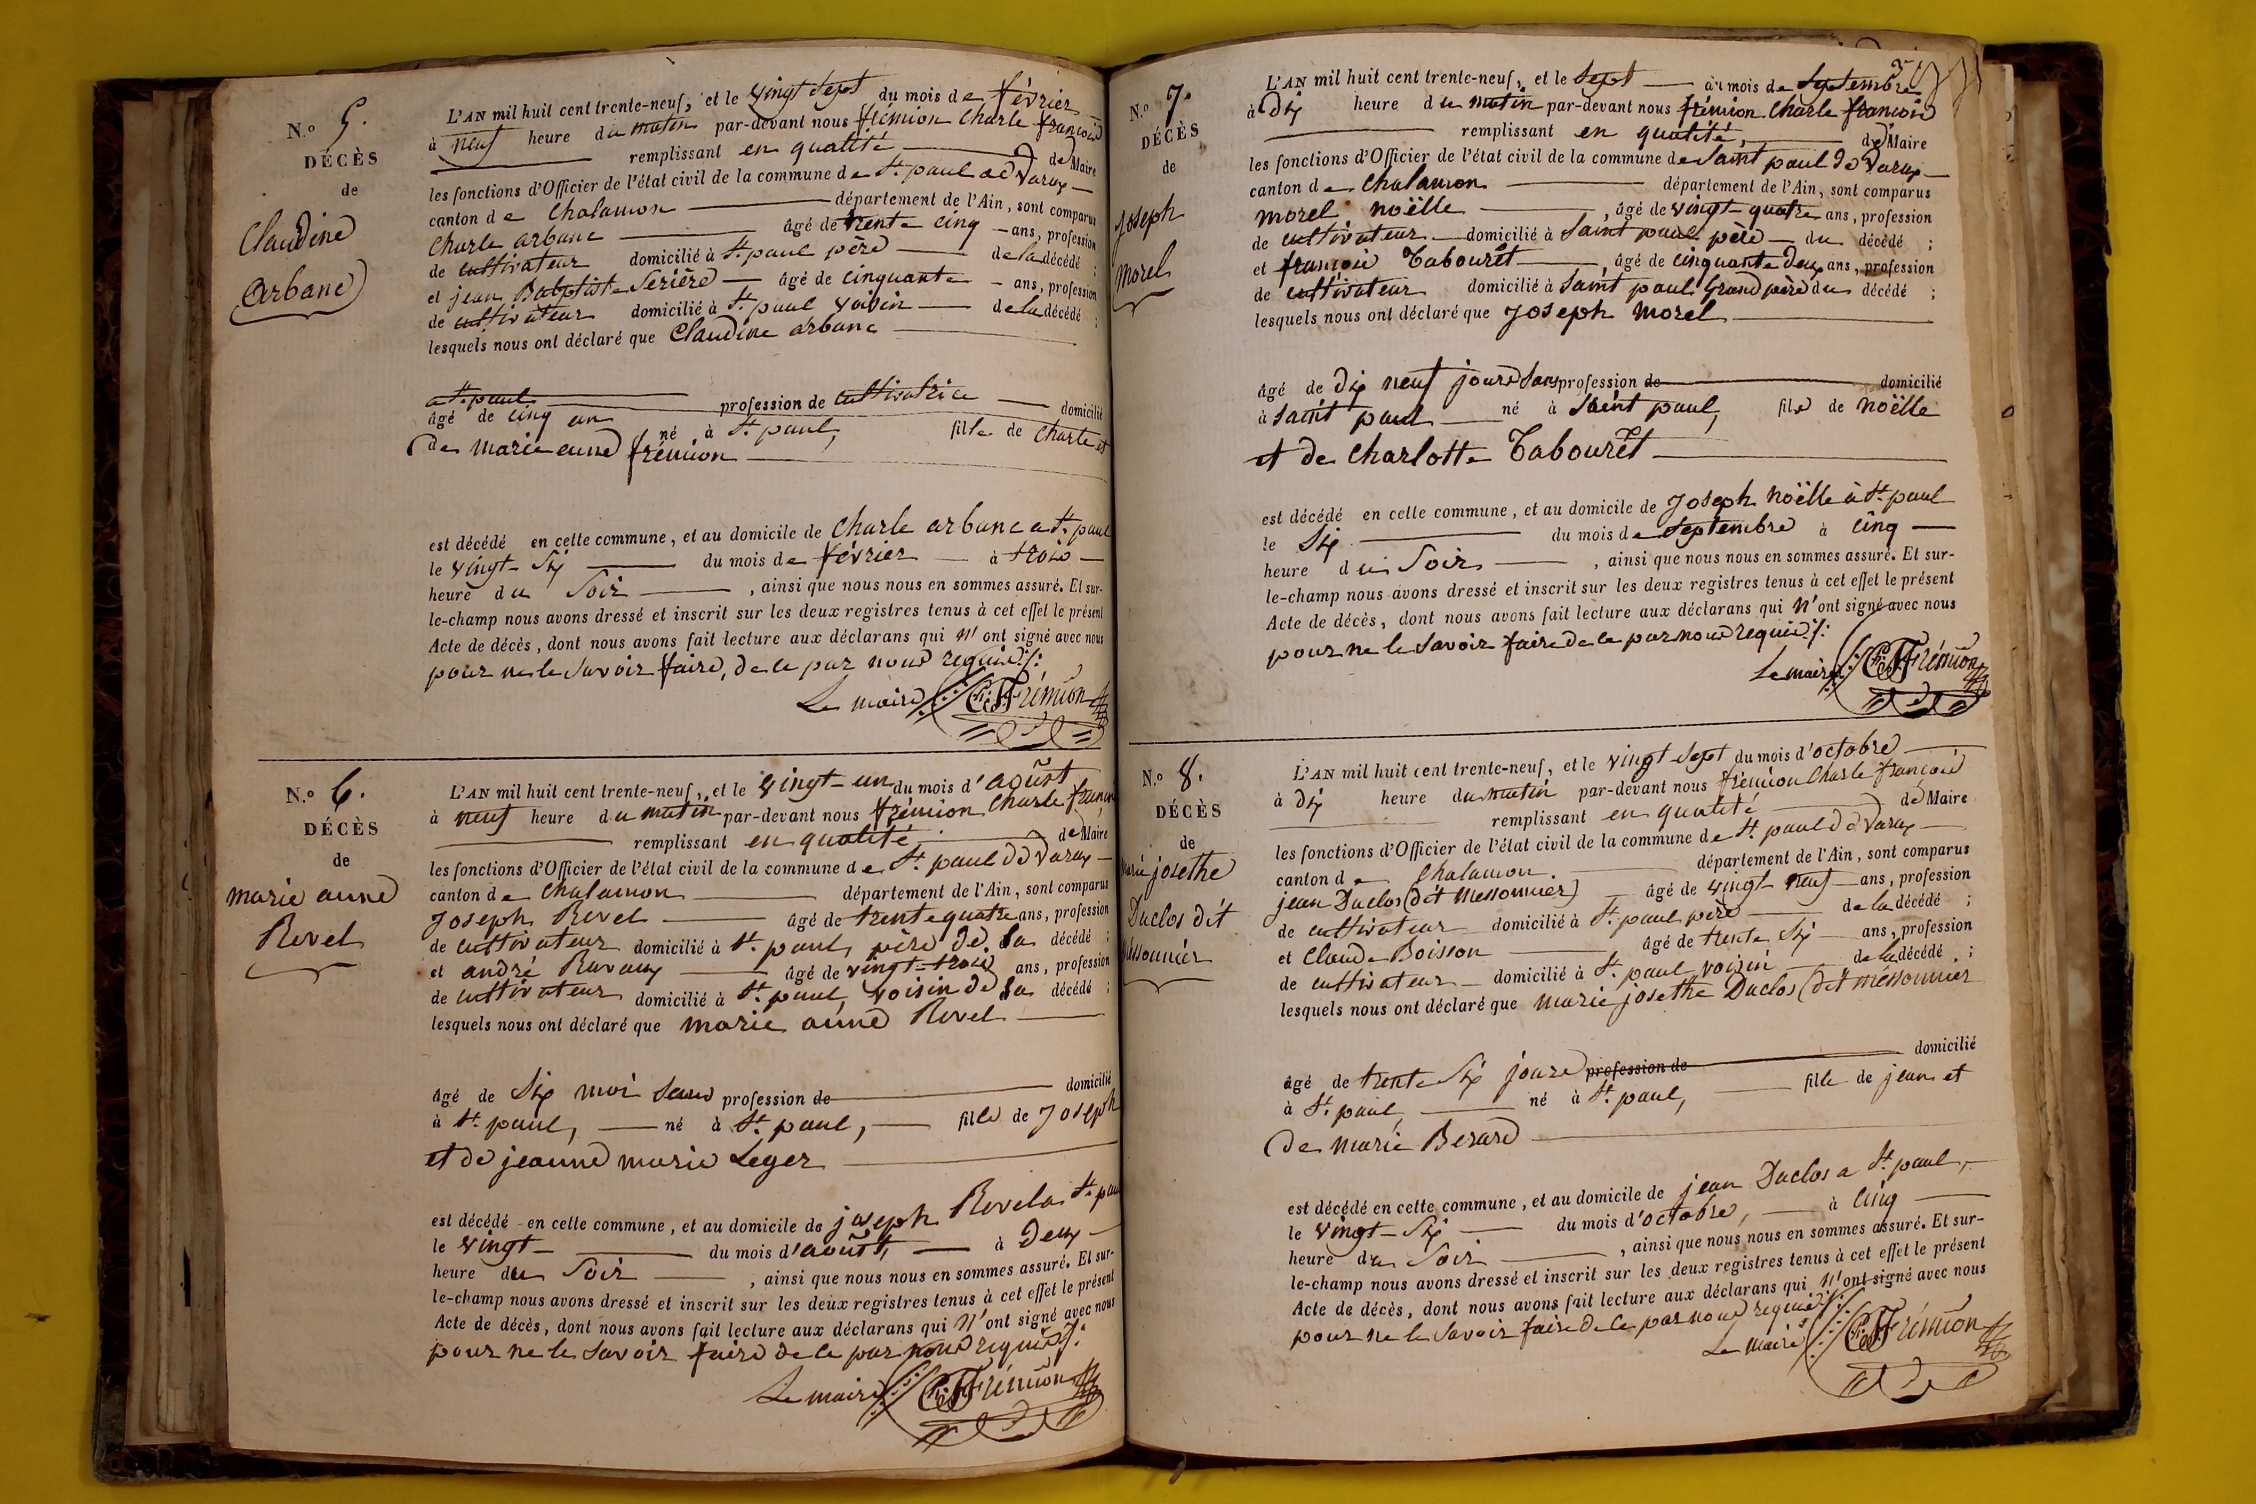 N.o 5.
DÉCÈS
de
Claudine
Arbanc
L'AN mil huit cent trente-neuf, et le vingt sept du mois de février
à neuf heure du matin par-devant nous frémion Charle françois
remplissant en qualité de Maire
les fonctions d'Officier de l'état civil de la commune de St. paul de Varax
canton de Chalamon département de l'Ain, sont comparus
Charle arbanc âgé de trente cinq ans, profession
de cultivateur domicilié à St. paul père de la décédé ;
et jean Babptiste Serière âgé de cinquante ans, profession
de cultivateur domicilié à St. paul voisin de la décédé ;
lesquels nous ont déclaré que Claudine arbanc
a St. paul
âgé de cinq an profession de cultivatrice domicilié
né à St. paul, fille de Charle et
de marie anne frémion
est décédé en cette commune, et au domicile de Charle arbanc a St. paul
le vingt-Six du mois de février à trois
heure du Soir, ainsi que nous nous en sommes assuré. Et sur-
le-champ nous avons dressé et inscrit sur les deux registres tenus à cet effet le présent
Acte de décès, dont nous avons fait lecture aux déclarans qui n'ont signé avec nous
pour ne le Savoir faire, de ce par nous requis ./.
Le maire Ch. F Frémion
N.o 6.
DÉCÈS
de
marie anne
Revel
L'AN mil huit cent trente-neuf, et le vingt-un du mois d'août
à neuf heure du matin par-devant nous frémion Charle françois
remplissant en qualité de Maire
les fonctions d'Officier de l'état civil de la commune de St. paul de Varax
canton de Chalamon département de l'Ain, sont comparus
Joseph Revel âgé de trente quatre ans, profession
de cultivateur domicilié à St. paul, père de la décédé ;
et andré Ravaux âgé de vingt-trois ans, profession
de cultivateur domicilié à St. paul, voisin de la décédé ;
lesquels nous ont déclaré que marie anne Revel
âgé de Six moi Sans profession de domicilié
à St. paul, né à St. paul, fille de Joseph
et de jeanne marie Leger
est décédé en cette commune, et au domicile de joseph Revel a St. paul
le vingt du mois d'août, à deux
heure du Soir, ainsi que nous nous en sommes assuré. Et sur-
le-champ nous avons dressé et inscrit sur les deux registres tenus à cet effet le présent
Acte de décès, dont nous avons fait lecture aux déclarans qui n'ont signé avec nous
pour ne le Savoir faire de ce par nous requis ./.
Le maire Ch. F Frémion
N.o 7.
DÉCÈS
de
Joseph
Morel
L'AN mil huit cent trente-neuf, et le Sept du mois de Septembre
à dix heure du matin par-devant nous frémion Charle françois
remplissant en qualité, de Maire
les fonctions d'Officier de l'état civil de la commune de Saint paul de Varax
canton de Chalamon département de l'Ain, sont comparus
morel noëlle, âgé de vingt-quatre ans, profession
de cultivateur domicilié à Saint paul père du décédé ;
et françois Tabouret, âgé de cinquante deux ans, profession
de cultivateur domicilié à Saint paul Grand père du décédé ;
lesquels nous ont déclaré que Joseph morel
âgé de dix neuf jours Sans profession de domicilié
à Saint paul né à Saint paul, fils de noëlle
et de Charlotte Tabouret
est décédé en cette commune, et au domicile de Joseph noëlle à St. paul
le Six du mois de Septembre à cinq
heure du Soir, ainsi que nous nous en sommes assuré. Et sur-
le-champ nous avons dressé et inscrit sur les deux registres tenus à cet effet le présent
Acte de décès, dont nous avons fait lecture aux déclarans qui n'ont signé avec nous
pour ne le Savoir faire de ce par nous requis ./.
Le maire Ch. F Frémion
N.o 8.
DÉCÈS
de
Marie josethe
Duclos dit
Méssonnier
L'AN mil huit cent trente-neuf, et le vingt Sept du mois d'octobre
à dix heure du matin par-devant nous frémion Charle françois
remplissant en qualité de Maire
les fonctions d'Officier de l'état civil de la commune de St. paul de Varax
canton de Chalamon. département de l'Ain, sont comparus
jean Duclos (dit Messonnier) âgé de vingt neuf ans, profession
de cultivateur domicilié à St. paul père de la décédé ;
et Claude Boisson âgé de trente Six ans, profession
de cultivateur domicilié à St. paul voisin de la décédé ;
lesquels nous ont déclaré que marie josethe Duclos (dit méssonnier
âgé de trente Six jours profession de domicilié
à St. paul, né à St. paul, fille de jean et
de marie Berard
est décédé en cette commune, et au domicile de jean Duclos a St. paul,
le vingt-Six du mois d'octobre, à cinq
heure du Soir, ainsi que nous nous en sommes assuré. Et sur-
le-champ nous avons dressé et inscrit sur les deux registres tenus à cet effet le présent
Acte de décès, dont nous avons fait lecture aux déclarans qui n'ont signé avec nous
pour ne le Savoir faire de ce par nous requis ./.
Le maire Ch. F Frémion